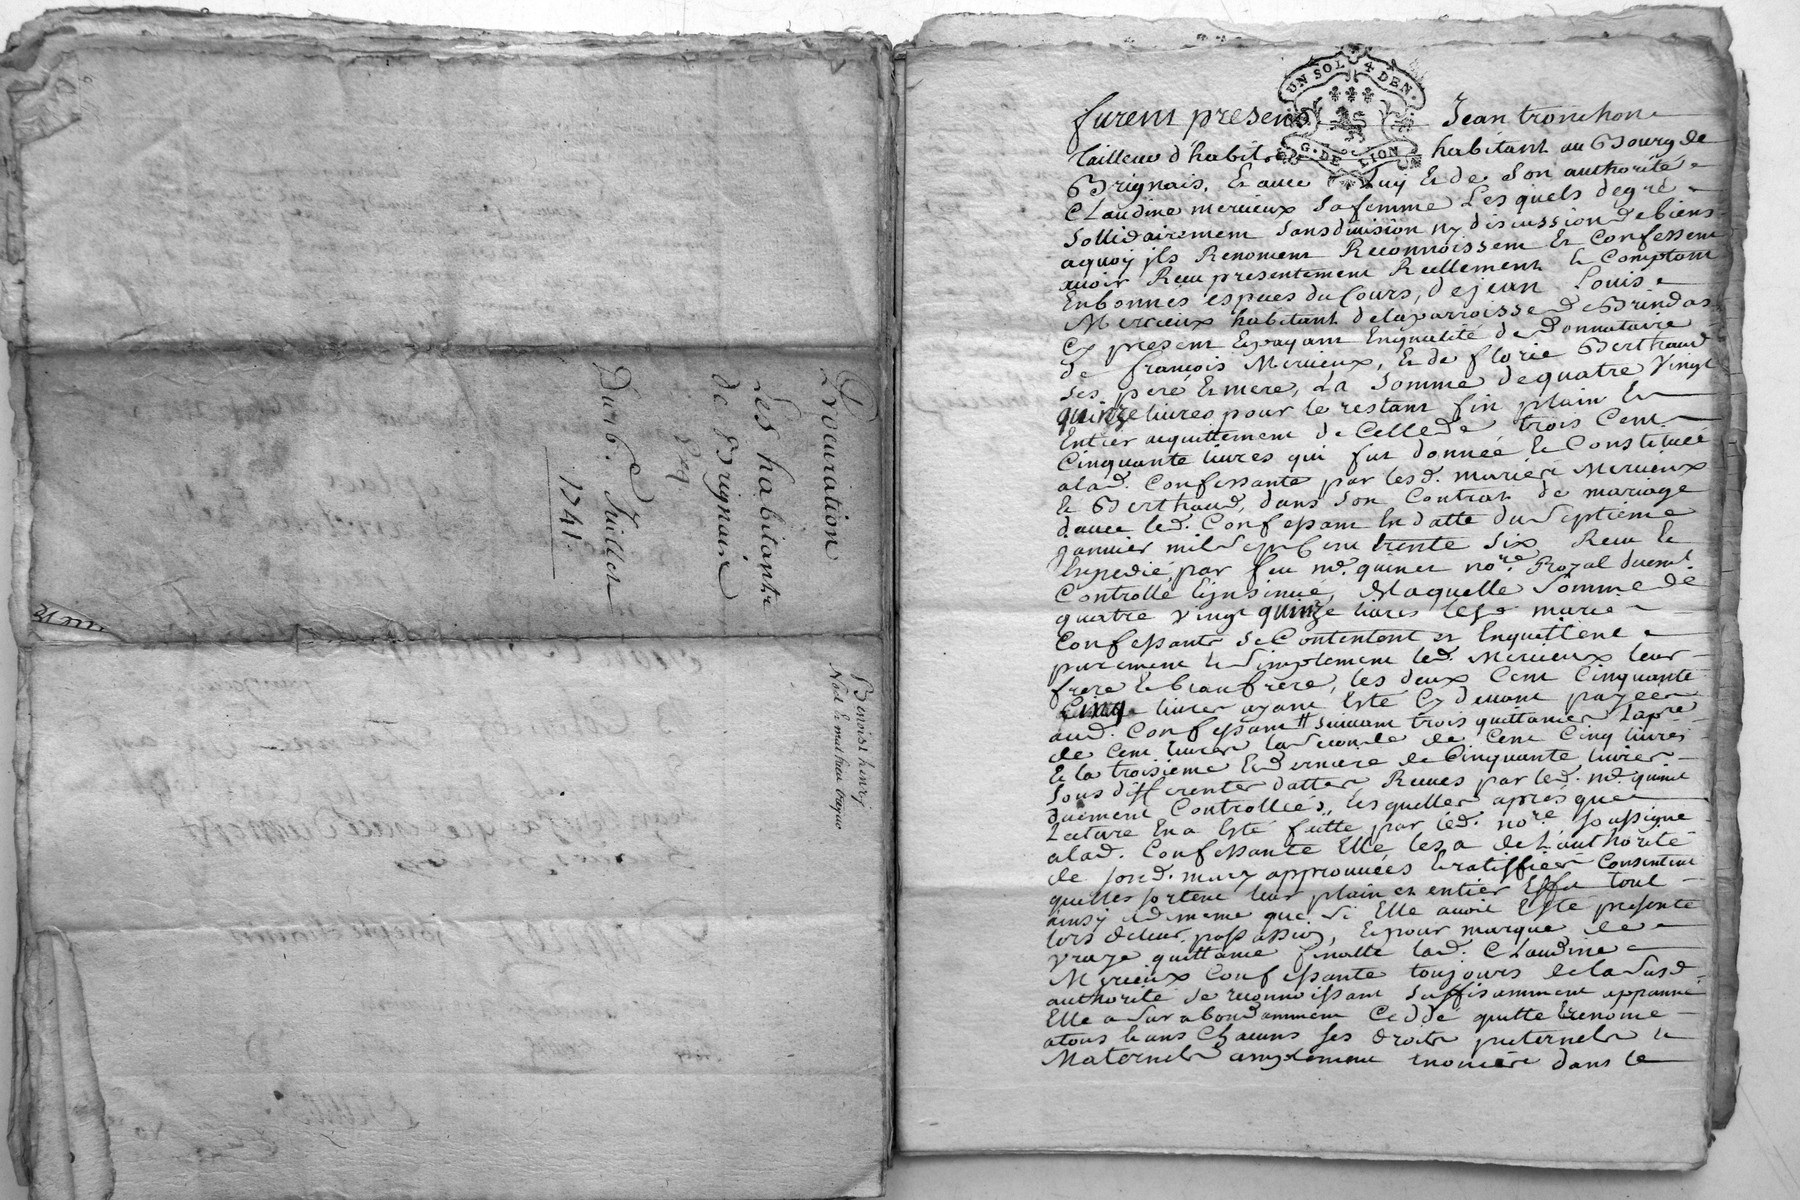 Procuration
Les habitants
de Brignais
Du 16e Juillet
1741.
Benoist henry
UN SOL 4 DEN.
G. DE LION
furent presens Jean tronchon
tailleur d'habits habitant au Bourg de
Brignais, Et avec luy Et de Son authorité
CLaudine mercieux Sa femme Lesquels de gré
Sollidairement Sans division ny discussion de biens
aquoy ils Renoncent Reconnoissent Et Confessent
avoir Receu presentement Reellement Et Comptant
En bonnes especes du Cours, de jean Louis
Mercieux habitant dela parroisse de Brindas
Cy present Et payant En qualité de Donnataire
de françois Mercieux, Et de florie Berthaud
Ses pere Et mere, La Somme de quatre vingt
quinze livres pour le restant fin plain Et
Entier acquittement de Celle de trois Cent
Cinquante livres qui fut donnée Et Constituée
alad. Confessante par lesd. mariés Mercieux
Et Berthaud, dans Son Contrat de mariage
d'avec led. Confessant En datte du Septieme
Janvier mil Sept Cent trente Six Receu Et
Expedié par feu me. quinet nore. Royal duemt.
Controllé Et jnsinué, De laquelle Somme de
quatre vingt quinze livres lesd. mariés
Confessants Se Contentent et En quittent
purement Et Simplement led. Mercieux leur
frere Et beaufrere, les deux Cent Cinquante
Cinq livres ayant Esté Cy devant payées
aud. Confessant Suivant trois quittances Lapre
de Cent livres la Seconde de Cent Cinq livres
Et la troisieme Et Derniere de Cinquante livres
Sous differentes dattes Receues par led. me. quinet
duement Controllées, lesquelles après que
Lecture En a Esté faitte par led. nore. soussigné
alad. Confessante Elle les a de L'authorité
de sond. mary approuvées Et ratiffiées Consentant
quelles sortent leur plain et entier Effet tout
ainsy Et de meme que Si Elle avoit Esté presente
lors de leur passation, Et pour marque de
vraye quittance finalle lad. CLaudine
Mercieux Confessante toujours de la Susd.
authorité Se reconnoissant Suffisamment appannée
Elle a Surabondamment Ceddé quitté Et renoncé
a tous Et uns Chacuns ses droits paternels Et
Maternels amplement enoncés dans le